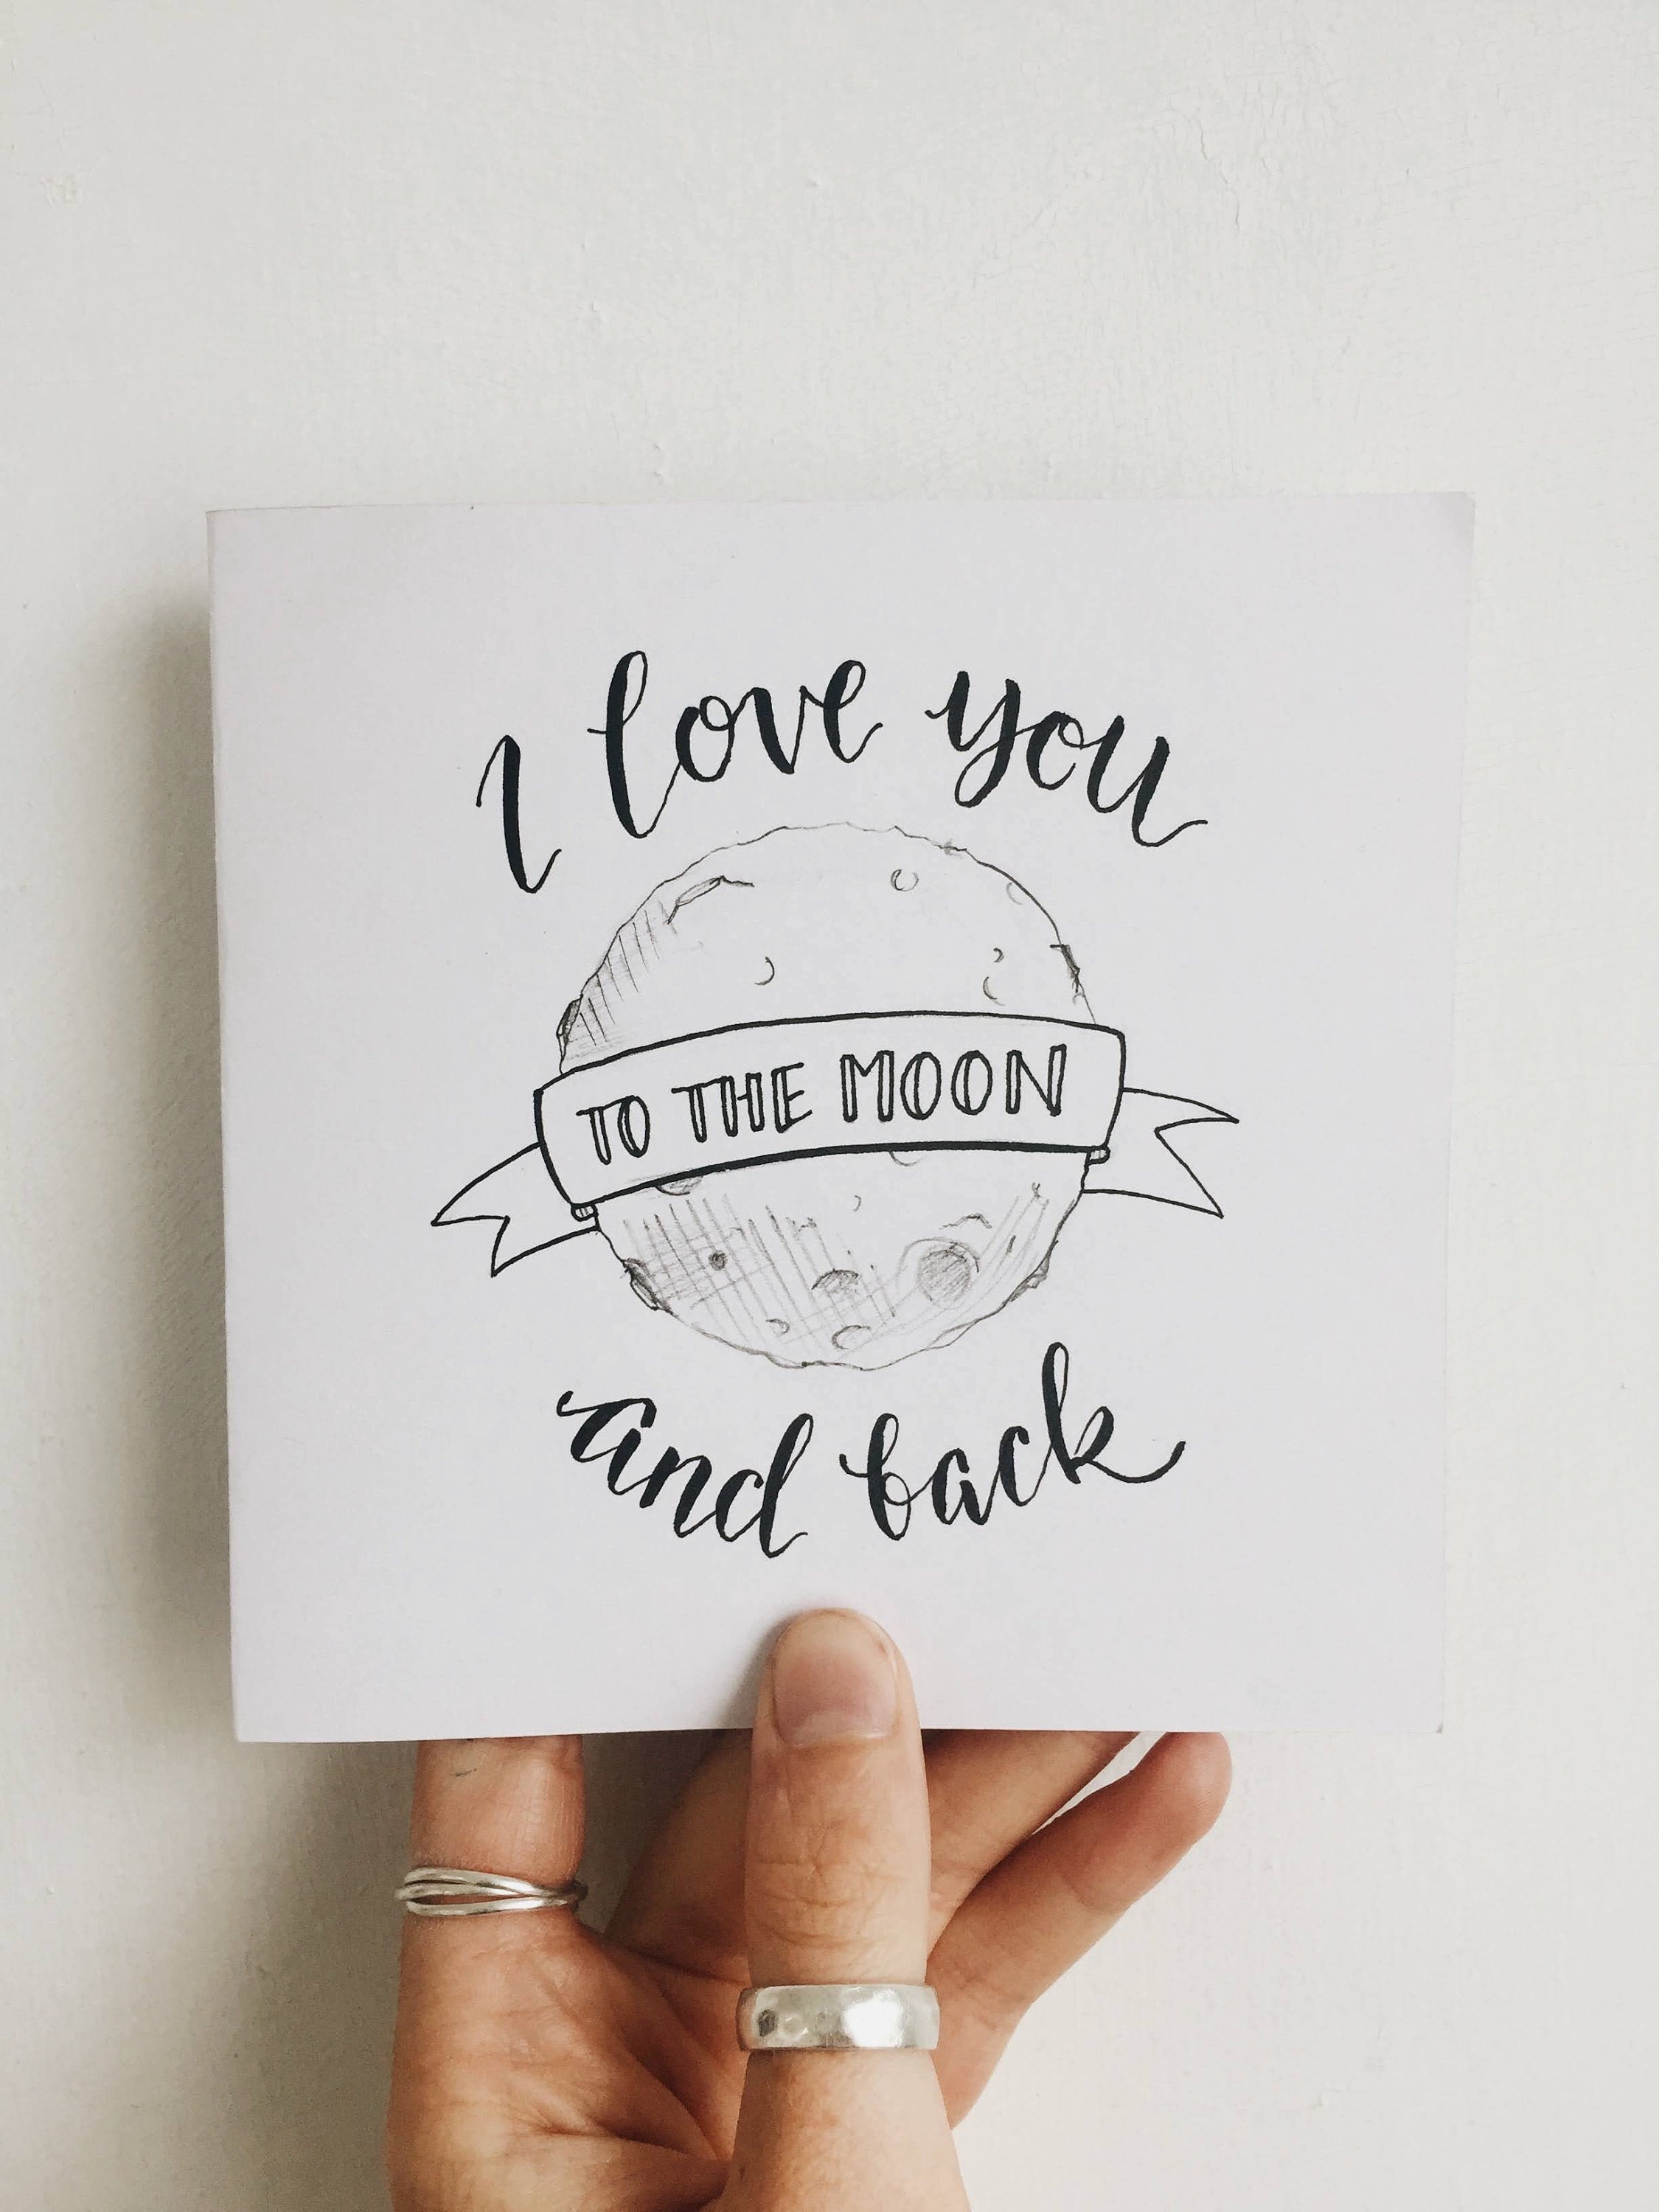 I love you
TO THE MOON
and back